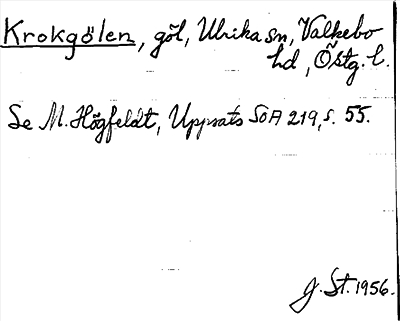 Krokgölen, göl, Ulrika sn, Valkebo
hd, Östg. l.
Se M. Högfeldt, Uppsats SOA 219, s. 55.
J. St. 1956.